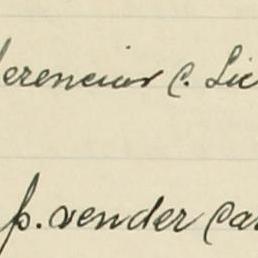 ferencias C. Lic
p. vender Car